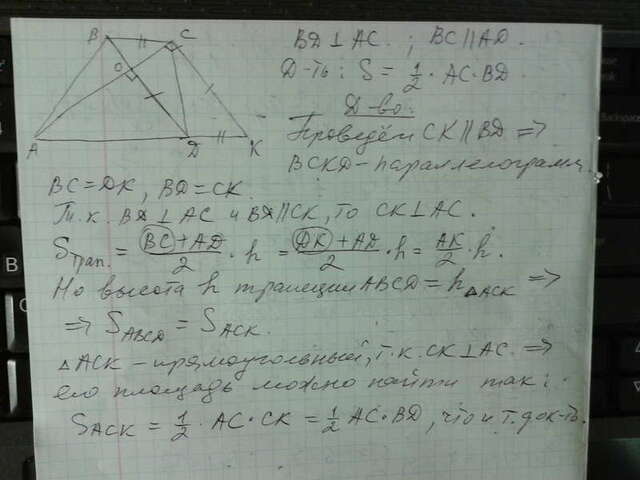 B C
O
A D K
BD ⊥ AC. ; BC ∥ AD.
Д-ть: S = 1/2 · AC · BD.
Д-во:
Проведём CK ∥ BD ⇒
BCKD - параллелограмм.
BC = DK, BD = CK.
Т.к. BD ⊥ AC и BD ∥ CK, то CK ⊥ AC.
Sтрап. = (BC + AD)/2 · h = (DK + AD)/2 · h = AK/2 · h.
Но высота h трапеции ABCD = h△ACK ⇒
⇒ SABCD = SACK.
△ACK - прямоугольный, т.к. CK ⊥ AC. ⇒
его площадь можно найти так:
SACK = 1/2 · AC · CK = 1/2 AC · BD, что и т. док-ть.
B
Backspace